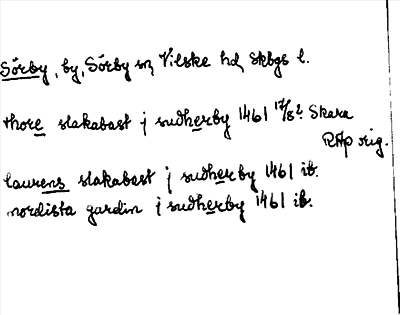 Sörby, by, Sörby sn, Vilske hd, Skbgs l.
thore slakabast j sudherby 1461 17/8? Skara
RAp orig.
laurens slakabast j sudherby 1461 ib.
nordista gardin j sudherby 1461 ib.